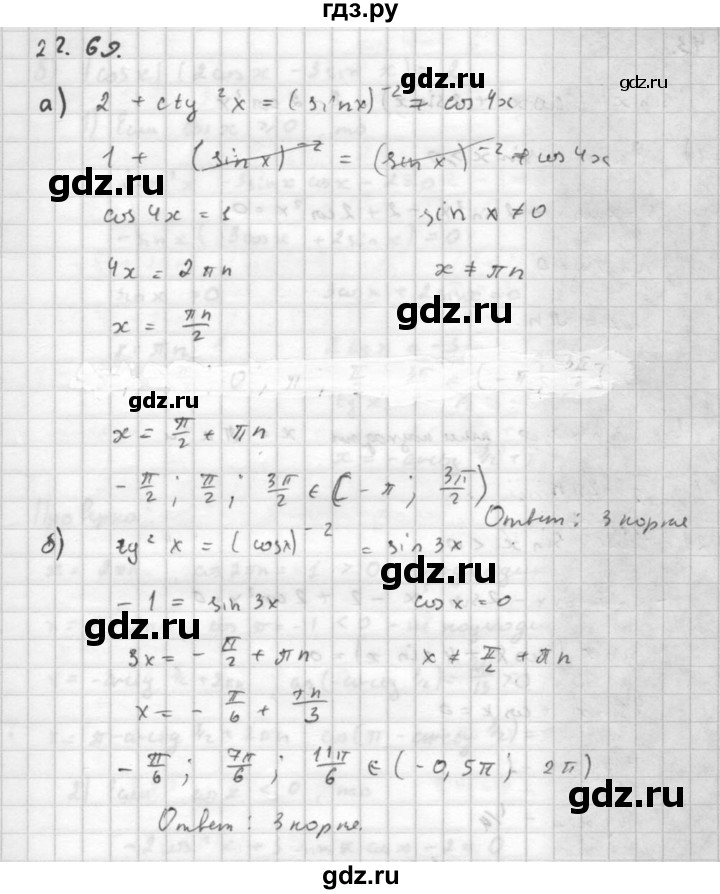 гдз.ру
22.69.
gdz.ru
gdz.ru
а) 2 + ctg ²x = (sinx)⁻² + cos 4x
1 + (sin x)⁻² = (sin x)⁻² + cos 4x
gdz.ru
cos 4x = 1 sin x ≠ 0
4x = 2πn x ≠ πn
gdz.ru
x = πn/2
gdz.ru
x = π/2 + πn
gdz.ru
- π/2 ; π/2 ; 3π/2 ∈ [-π ; 3π/2)
Ответ: 3 корня
б) tg² x = (cosx)⁻² = sin 3x
gdz.ru
- 1 = sin 3x cos x = 0
gdz.ru
3x = - π/2 + πn x ≠ π/2 + πn
x = - π/6 + πn/3
gdz.ru
- π/6 ; 7π/6 ; 11π/6 ∈ (- 0,5π ; 2π)
gdz.ru
Ответ: 3 корня.
gdz.ru